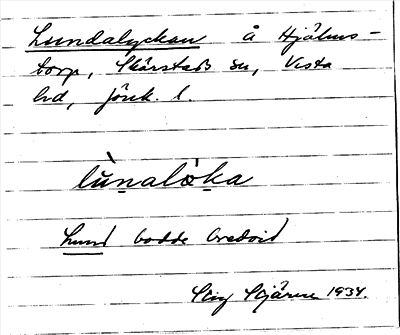 Lundalyckan å Hjälms-
torp, Skärstads sn, Vista
hd, Jönk. l.
lù̱nalò̱ka
Lund bodde bredvid
Stig 1934.